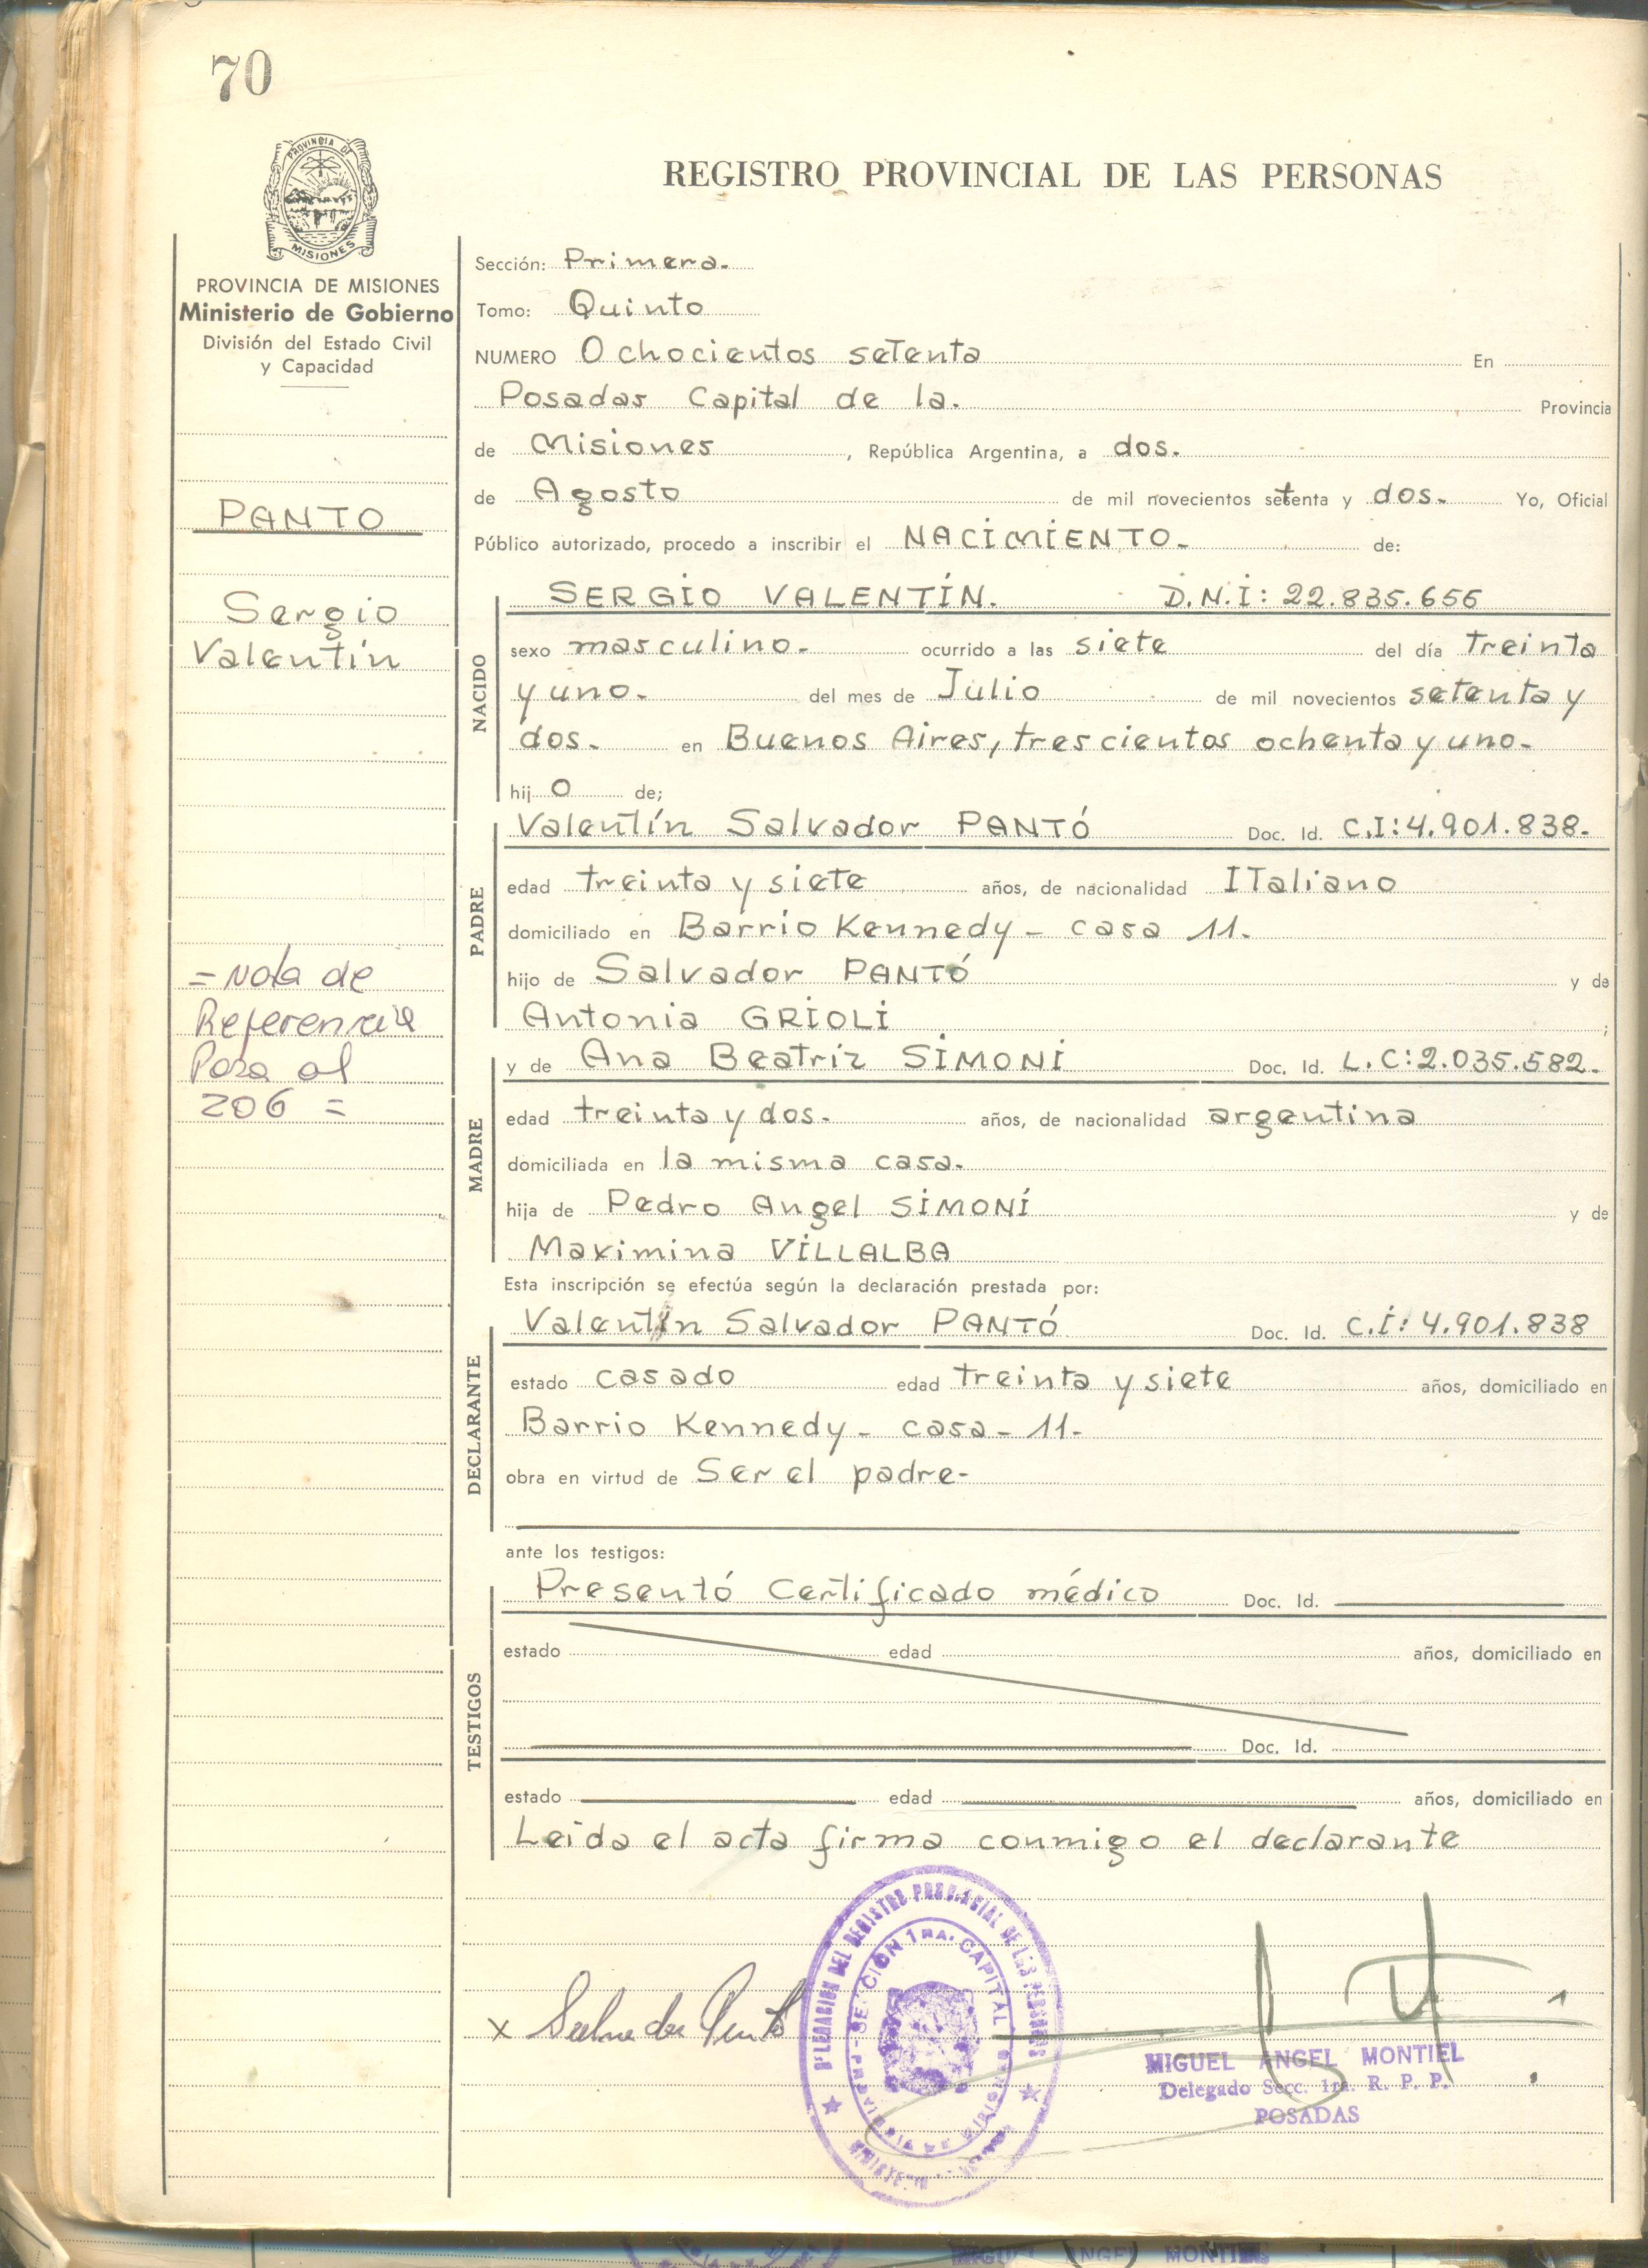 70
PROVINCIA DE
MISIONES
REGISTRO PROVINCIAL DE LAS PERSONAS
PROVINCIA DE MISIONES
Ministerio de Gobierno
División del Estado Civil
y Capacidad
PANTO
Sergio
Valentín
= Nota de
Referencia
Pasa al
206 =
Sección: Primera.
Tomo: Quinto
NUMERO Ochocientos setenta En
Posadas Capital de la. Provincia
de Misiones, República Argentina, a dos.
de Agosto de mil novecientos setenta y dos. Yo, Oficial
Público autorizado, procedo a inscribir el NACIMIENTO. de:
NACIDO
SERGIO VALENTÍN. D.N.I: 22.835.656
sexo masculino. ocurrido a las siete del día treinta
y uno. del mes de Julio de mil novecientos setenta y
dos. en Buenos Aires, trescientos ochenta y uno.
hij o de;
PADRE
Valentín Salvador PANTÓ Doc. Id. C.I:4.901.838.
edad treinta y siete años, de nacionalidad ITaliano
domiciliado en Barrio Kennedy - casa 11.
hijo de Salvador PANTÓ y de
Antonia GRIOLI ;
MADRE
y de Ana Beatriz SIMONI Doc. Id. L.C:2.035.582.
edad treinta y dos. años, de nacionalidad argentina
domiciliada en la misma casa.
hija de Pedro Angel SIMONÍ y de
Maximina VILLALBA
Esta inscripción se efectúa según la declaración prestada por:
DECLARANTE
Valentín Salvador PANTÓ Doc. Id. C.I: 4.901.838
estado casado edad treinta y siete años, domiciliado en
Barrio Kennedy - casa - 11-
obra en virtud de Ser el padre-
ante los testigos:
TESTIGOS
Presentó Certificado médico Doc. Id.
estado edad años, domiciliado en
Doc. Id.
estado edad años, domiciliado en
Leida el acta firma conmigo el declarante
x Salvador Panto
DELEGACION DEL REGISTRO PROVINCIAL DE LAS PERSONAS
SECCION 1RA. CAPITAL
PROVINCIA DE MISIONES
MIGUEL ANGEL MONTIEL
Delegado Secc. 1ra. R. P. P.
POSADAS
MIGUEL ANGEL MONTIEL